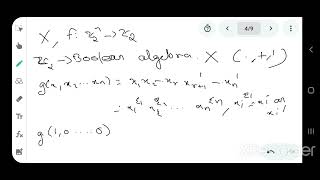 4/9
X, f: ℤ₂ⁿ → ℤ₂
ℤ₂ → Boolean algebra. X (·, +, ')
g(x₁ x₂ ... xₙ) = x₁ x₂ - xᵣ x'ᵣ₊₁ - xₙ'
= x₁^ε₁ x₂^ε₂ ... xₙ^εₙ, xᵢ^εᵢ = xᵢ or
xᵢ'
g(1, 0 ..... 0)